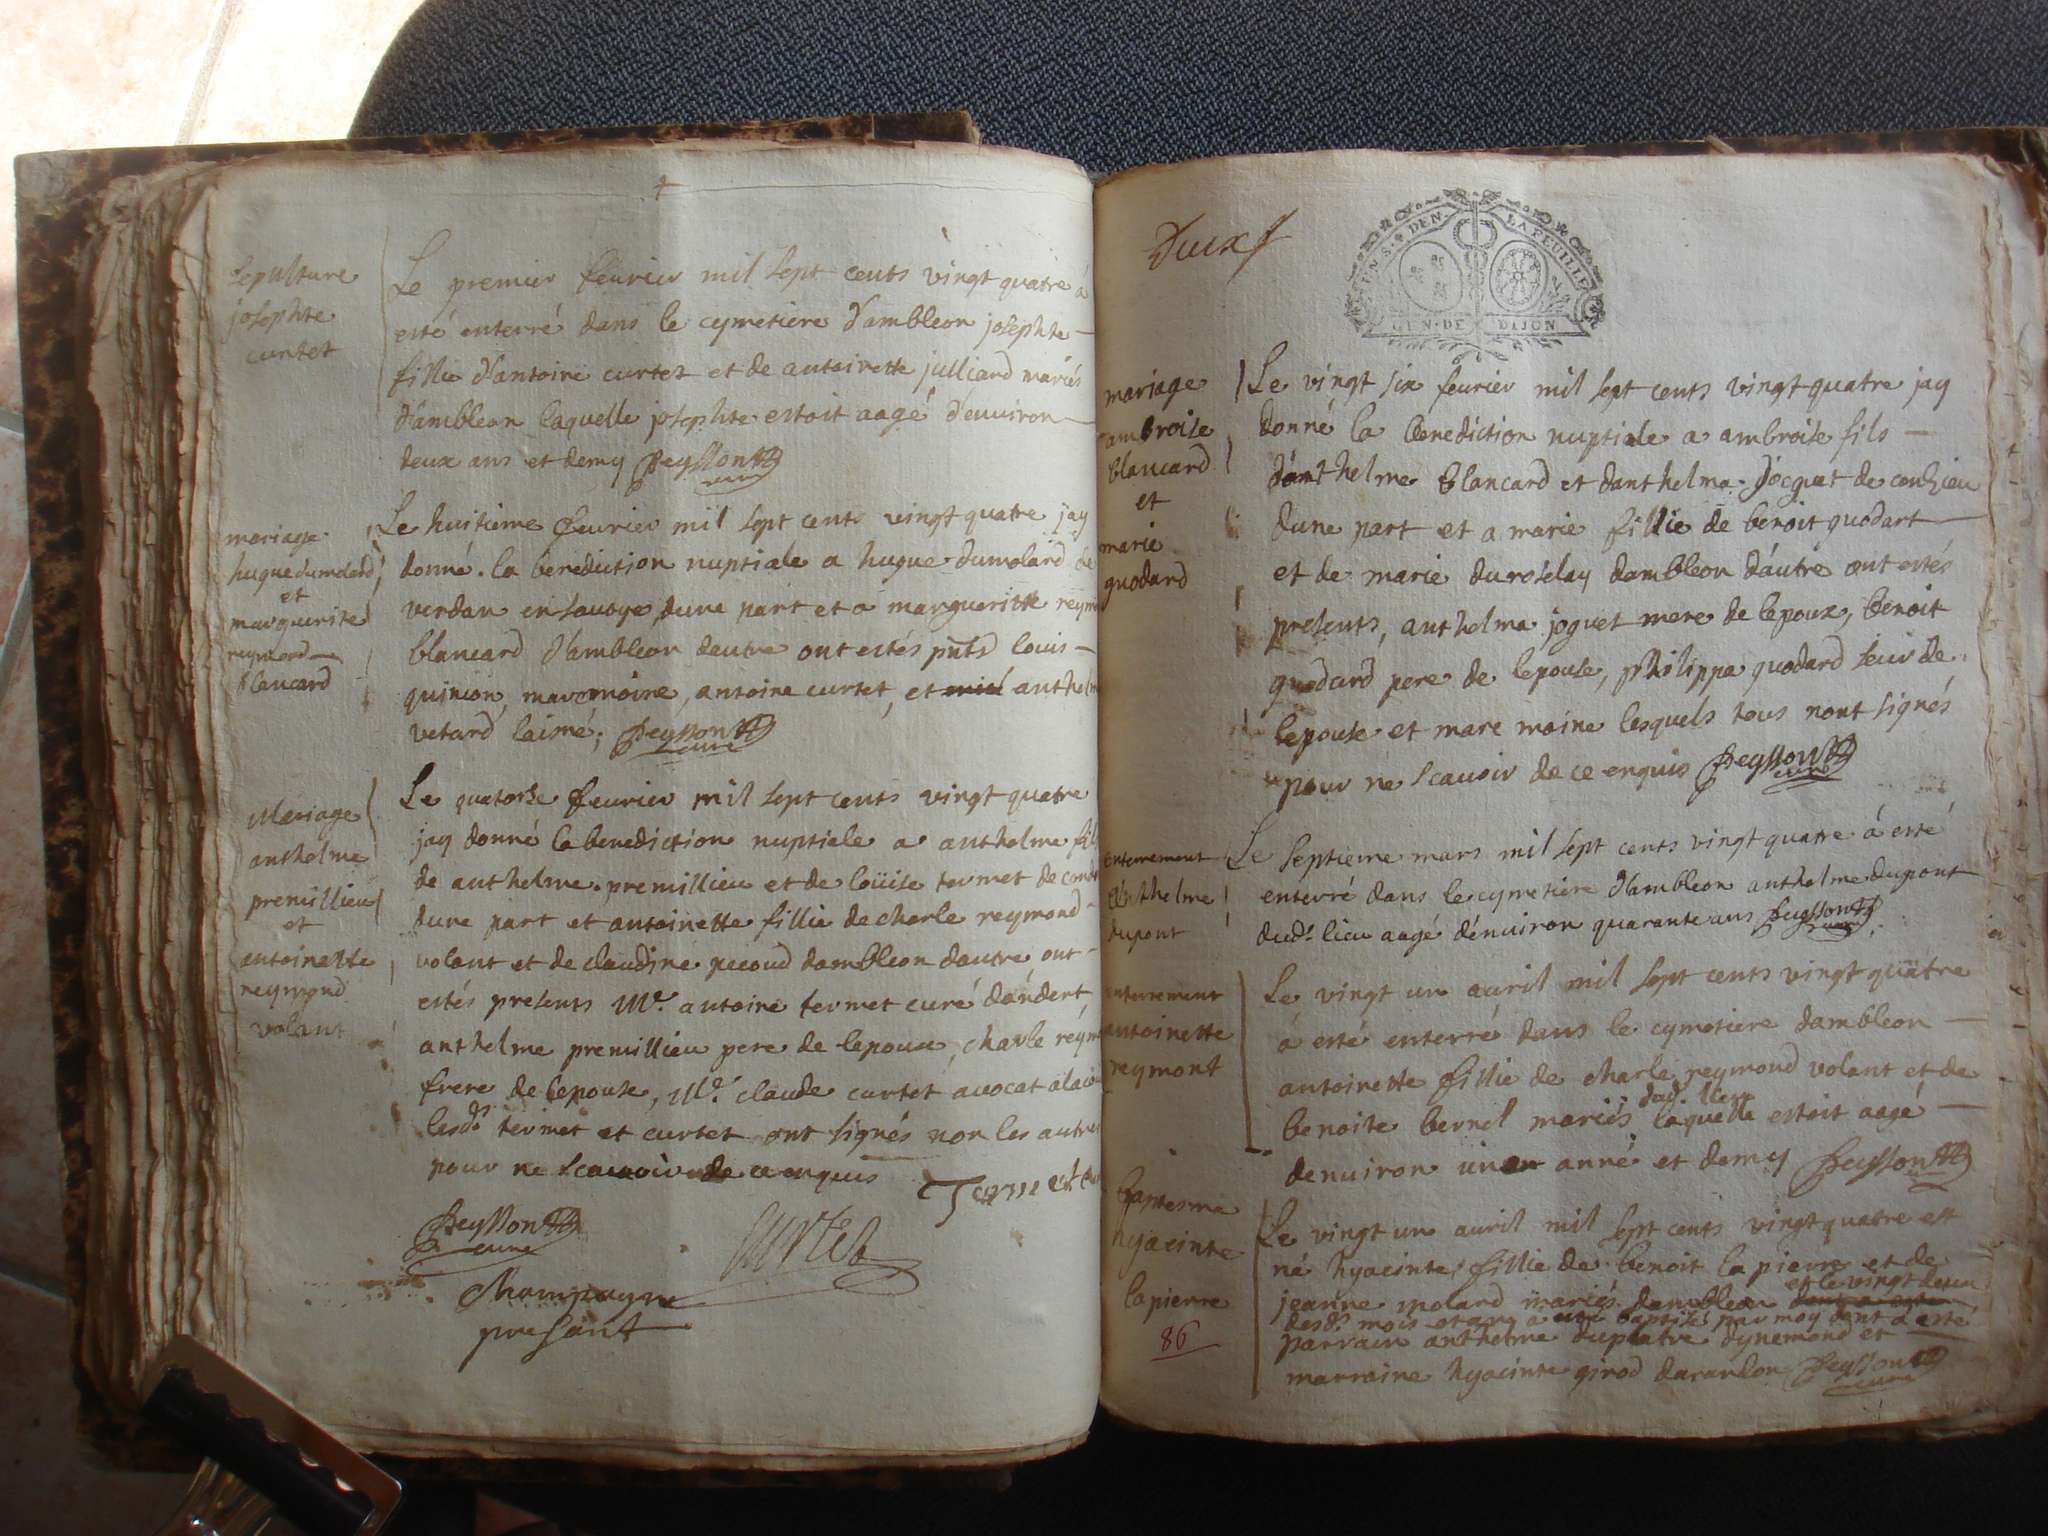 Sepulture
josephte
curtet
Le premier feurier mil sept cents vingt quatre à
esté enterré dans le cymetiere d'ambleon josephte
fillie d'antoine curtet et de antoinette julliard mariés
d'ambleon laquelle josephte estoit aagé d'enuiron
deux ans et demy Peysson
curé
mariage
hugue dumolard
et
marguerite
reymond
blancard
Le huitieme feurier mil sept cents vingt quatre jay
donné la benediction nuptiale a hugue dumolard de
verdan en sauoye dune part et a margueritte
blancard d'ambleon dautre ont estés pnts louis
quinson, marc moine, antoine curtet, et
vetard laisné; Peysson
curé
Mariage
anthelme
premillieu
et
antoinette
reymond
volant
Le quatorse feurier mil sept cents vingt quatre
jay donné la benediction nuptiale a anthelme fils
de anthelme premillieu et de loüise termet de
dune part et antoinette fillie de charle reymond
volant et de claudine pecoud dambleon dautre ont
estés presents Mr. antoine termet curé dandert
anthelme premillieu pere de lepoux, charle
frere de lepouse, Mr. claude curtet auocat
lesds termet et curtet ont signés non les autres
pour ne scauoir de ce enquis
Termet
Peysson
curé
Curtet
Champagne
presant
Deux
GEN. DE DIJON
mariage
ambroise
blancard
et
marie
quodard
Le vingt six feurier mil sept cents vingt quatre jay
donné la benediction nuptiale a ambroise fils
danthelme blancard et danthelma Jocguet de conzieu
dune part et a marie fillie de benoit quodart
et de marie duroselay dambleon dáutre ont estés
presents, anthelma joguet mere de lepoux, benoit
quodard pere de lepouse, philippa quodard seur de
lepouse et marc moine lesquels tous nont signés
pour ne scauoir de ce enquis Peysson
curé
enterrement
d'anthelme
dupont
Le septieme mars mil sept cents vingt quatre á esté
enterré dans le cymetiere d'ambleon anthelme dupont
dudt lieu aagé dénuiron quarante ans Peysson
curé
enterrement
antoinette
reymont
Le vingt un auril mil sept cents vingt quatre
á esté enterré dans le cymetiere dambleon
antoinette fillie de charle reymond volant et de
dud. lieu
benoite bernel mariés laquelle estoit aagé
denuiron un anné et demy Peysson
baptesma
hyacinte
lapierre
86
Le vingt un auril mil sept cents vingt quatre est
né hyacinte fillie de benoit lapierre et de
et le vingt deux
jeanne molard mariés dambleon
desds mois et an a esté baptisé par moy dont a esté
parrain anthelme duplatre dynemond et
marraine hyacinte girod darandon Peysson
curé